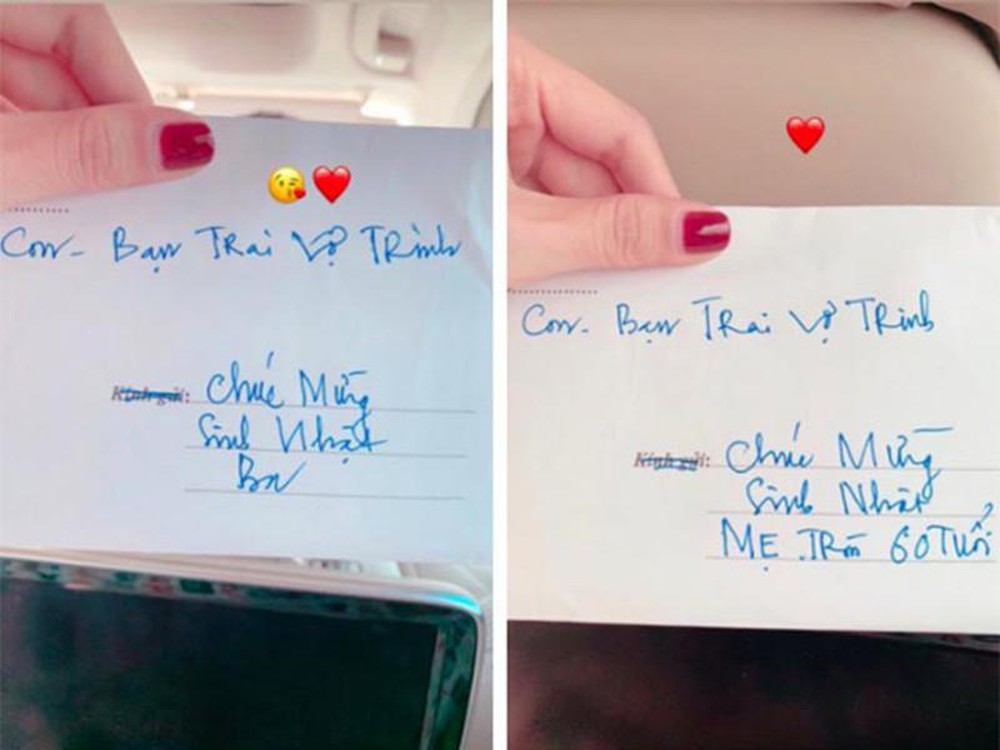 Con- Bạn Trai Vợ Trinh
Kính gửi: Chúc Mừng
Sinh Nhật
Ba
Con- Bạn Trai Vợ Trinh
Kính gửi: Chúc Mừng
Sinh Nhật
MẸ TRòn 60 Tuổi